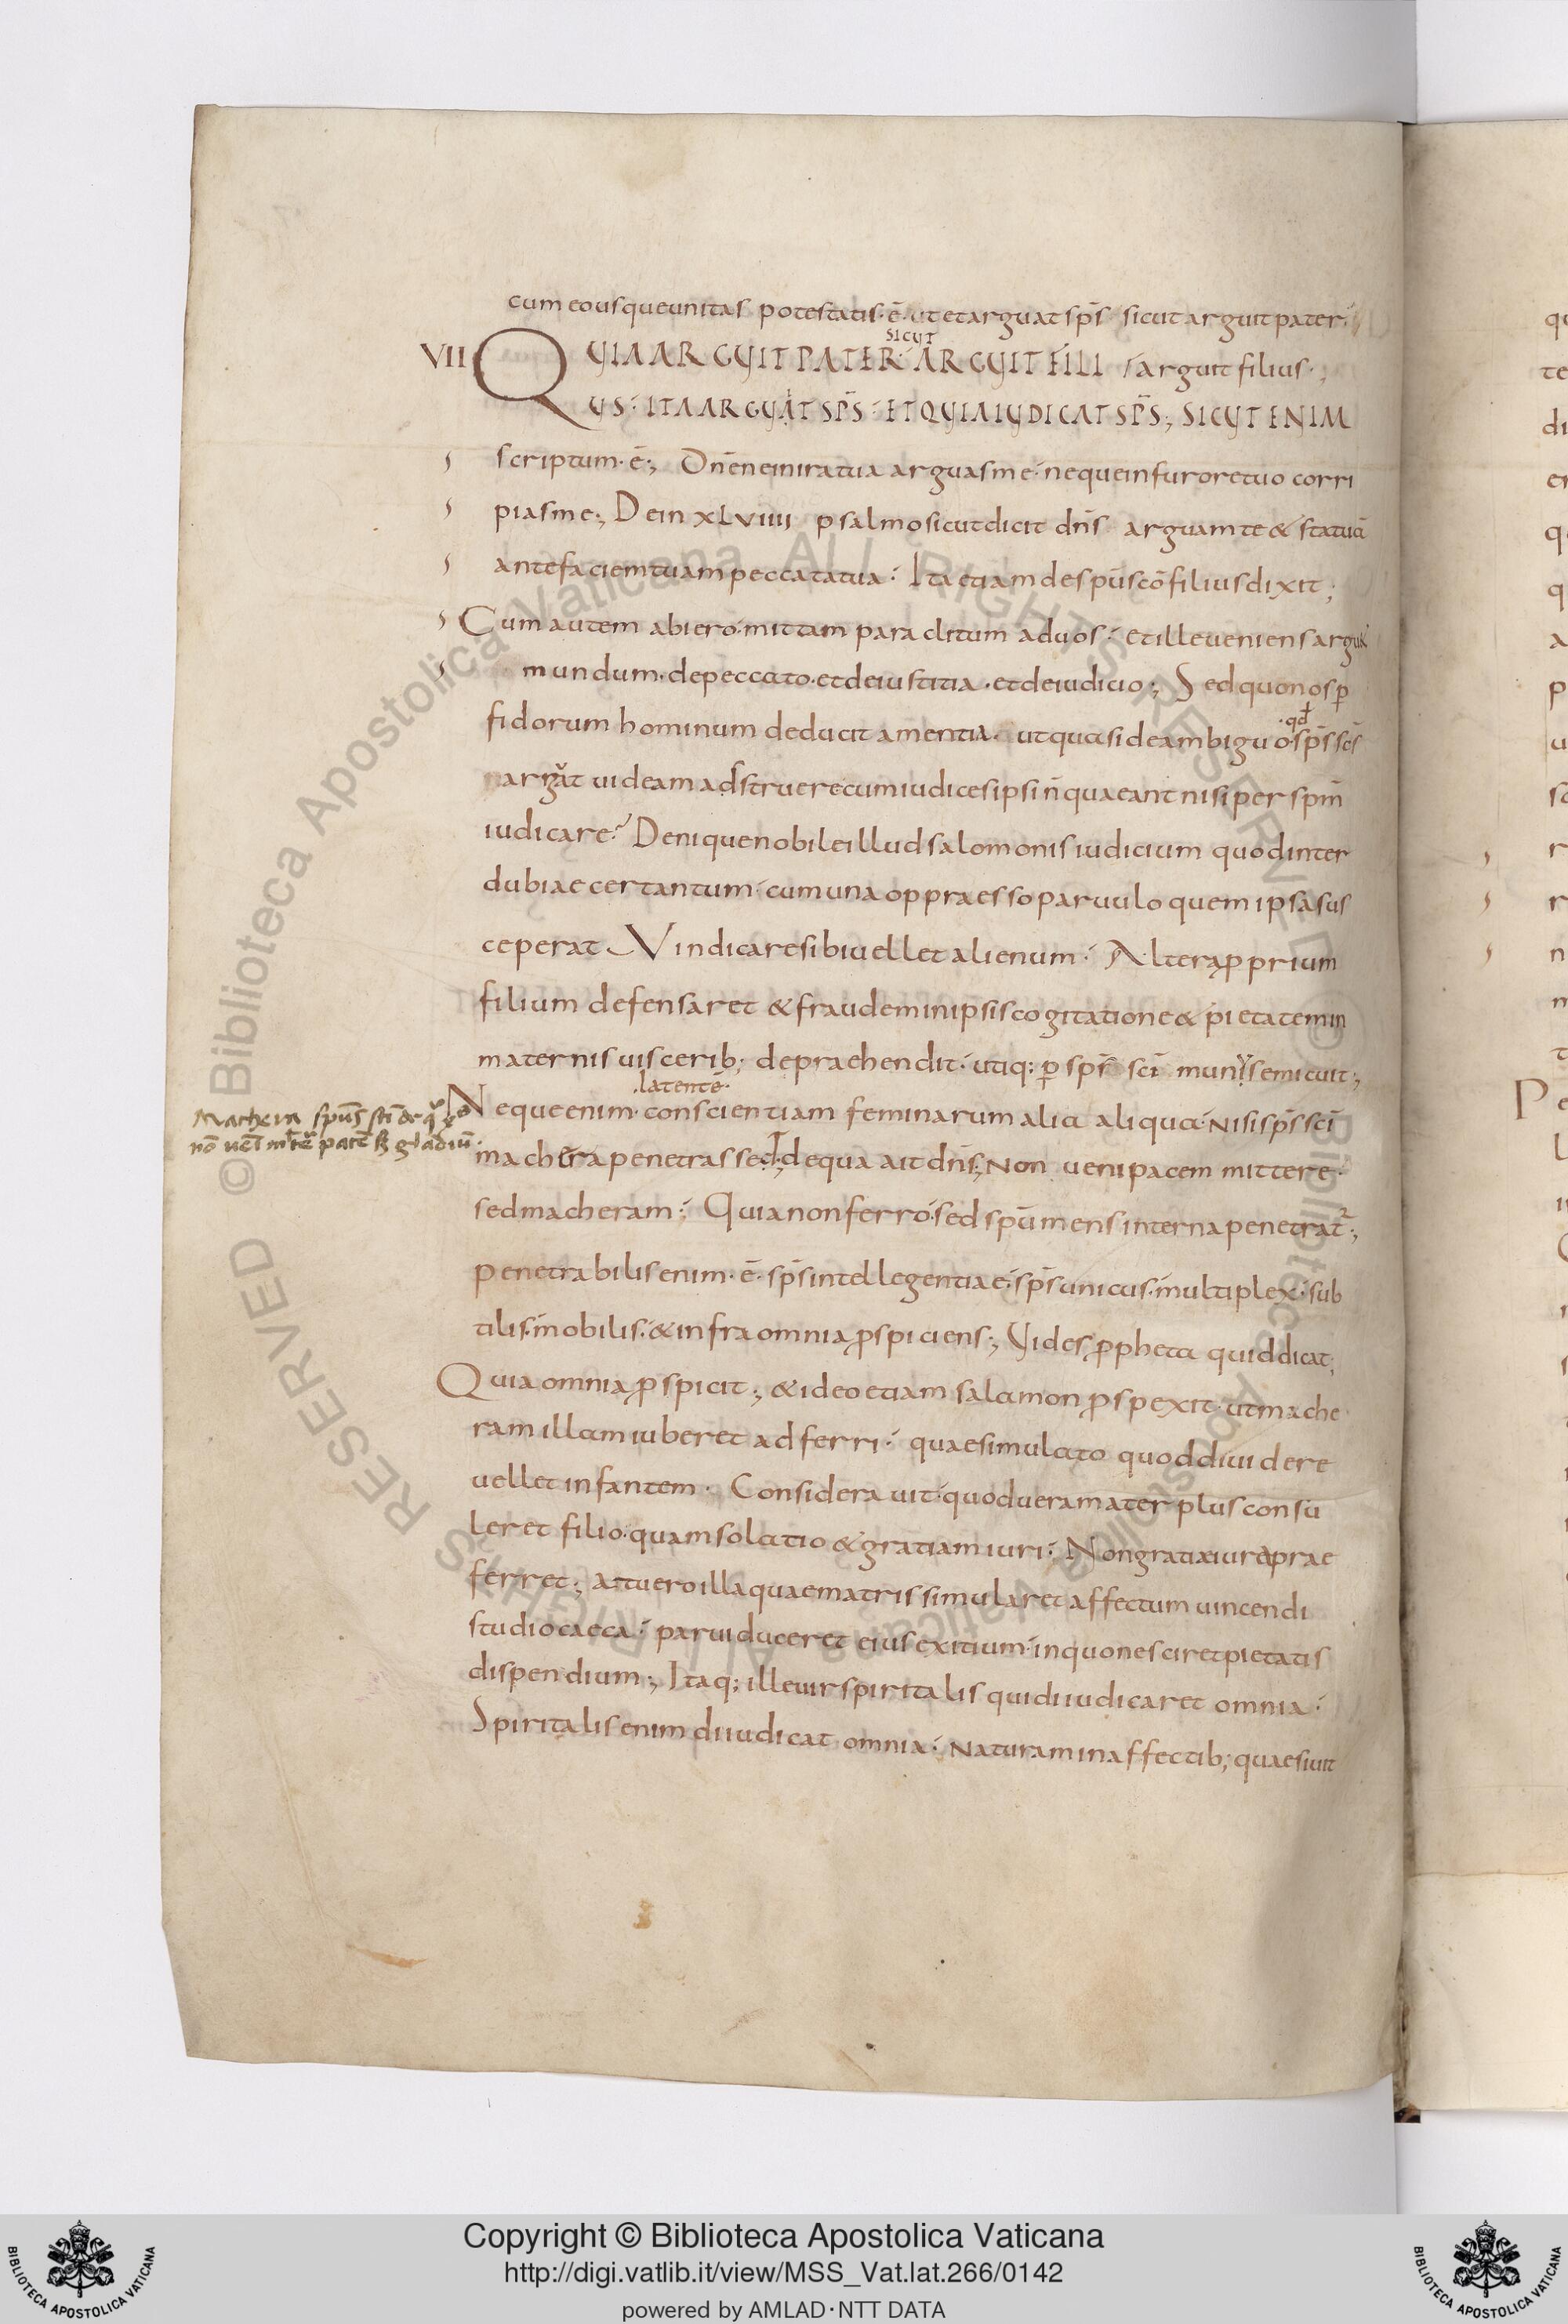 cum eousque unitas potestatis · ē · ut et arguat sp̄s sicut arguit pater ·
VII QUIA ARGUIT PATER · SICUT ARGUIT FILI / arguit filius ·
US · ITA ARGUAT SP̄S · ET QUIA IUDICAT SP̄S; SICUT ENIM
scriptum · ē; Dn̄e ne in ira tua arguas me · neque in furore tuo corri
pias me; Dein XLVIIII psalmo sicut dicit dn̄s arguam te & statuā
ante faciem tuam peccata tua · Ita etiam de sp̄u sc̄o filius dixit;
Cum autem abiero · mittam paraclitum ad vos · et ille veniens arguet
mundum · de peccato · et de iustitia · et de iudicio; Sed quo nos ꝑ
fidorum hominum deducit amentia · ut quasi de ambiguo · qd̄ · sp̄s sc̄s
arguat videam adstruere cum iudices ipsi n̄ queant nisi per sp̄m
iudicare? Denique nobile illud salomonis iudicium quod inter
dubiae certantum · cum una oppraesso parvulo quem ipsa sus
ceperat Vindicare sibi vellet alienum · Altera ꝓprium
filium defensaret & fraudem in ipsis cogitatione & pietatem in
maternis visceribꝫ depraehendit · utiqꝫ ꝑ sp̄s sc̄i munus emicuit;
Neque enim · latentē · conscientiam feminarum alia aliqua · nisi sp̄s sc̄i
Machera sp̄us sc̄i de q
nō ven̄
gladiū ·
machera penetrassed; de qua ait dn̄s; Non veni pacem mittere ·
sed macheram · Quia non ferro · sed sp̄u mens interna penetrat̄;
Penetrabilis enim · ē · sp̄s intellegentiae · sp̄s unicus · multiplex · sub
tilis · mobilis · & infra omnia ꝓspiciens; Vides ꝓpheta quid dicat;
Quia omnia ꝓspicit; & ideo etiam salamon ꝓspexit · ut mache
ram illam iuberet adferri · quae simulato quod dividere
vellet infantem · Consideravit · quod vera mater plus consu
leret filio · quam solatio & gratiam iuri · Non gratia iure prae
ferret; at vero illa quae matris simularet affectum vincendi
studio caeca · parvi duceret eius exitium · in quo nesciret pietatis
dispendium; Itaqꝫ ille vir spiritalis qui diiudicaret omnia ·
Spiritalis enim diiudicat omnia · naturam in affectibꝫ quaesivit
© Biblioteca Apostolica Vaticana ALL RIGHTS RESERVED
Copyright © Biblioteca Apostolica Vaticana
http://digi.vatlib.it/view/MSS_Vat.lat.266/0142
powered by AMLAD·NTT DATA
BIBLIOTECA APOSTOLICA VATICANA
BIBLIOTECA APOSTOLICA VATICANA